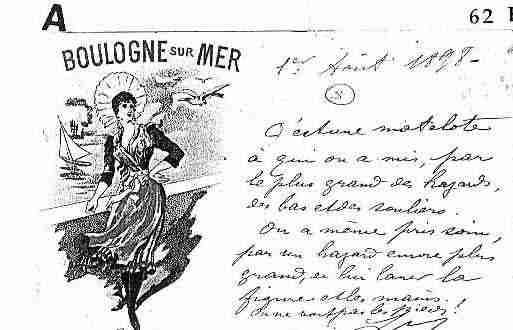 A
62
BOULOGNE SUR MER
1er Août 1898 -
8
C'est une matelote
à qui on a mis, par
le plus grand des hazards,
des bas et des souliers.
On a même pris soin,
par un hazard encore plus
grand, de lui laver la
figure et les mains.
On ne voit pas les pieds!